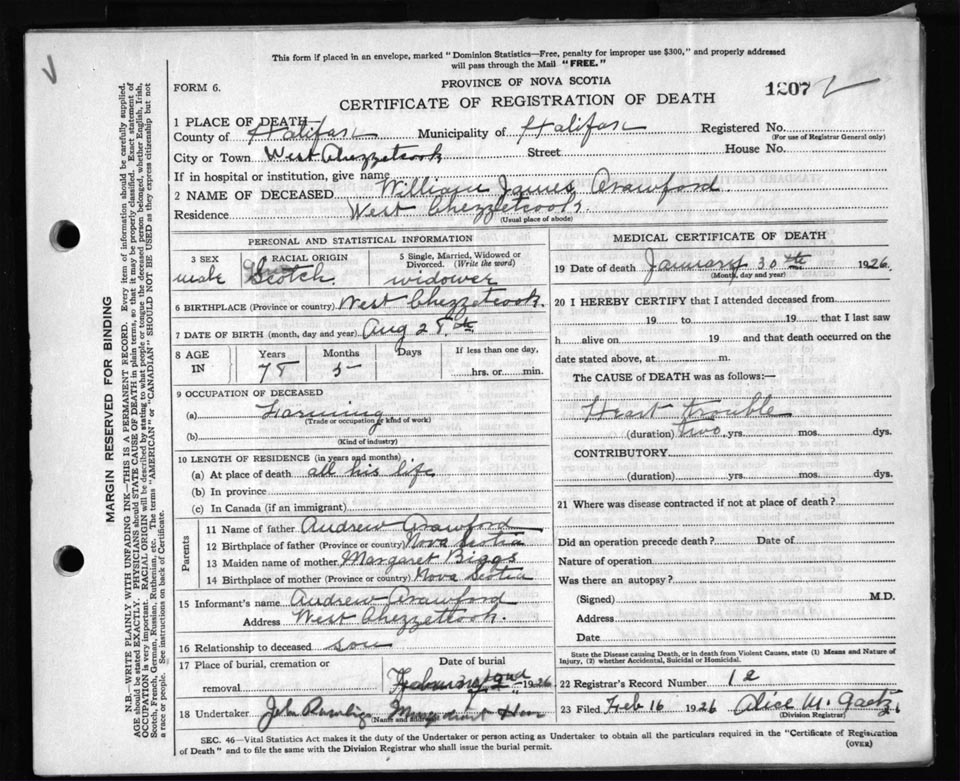 This form if placed in an envelope, marked "Dominion Statistics—Free, penalty for improper use $300," and properly addressed
will pass through the Mail "FREE."
FORM 6.
PROVINCE OF NOVA SCOTIA
CERTIFICATE OF REGISTRATION OF DEATH
1207
1 PLACE OF DEATH
County of Halifax Municipality of Halifax Registered No.
(For use of Registrar General only)
City or Town West Chezzetcook Street House No.
If in hospital or institution, give name
2 NAME OF DECEASED William James Crawford
Residence West Chezzetcook.
(Usual place of abode)
PERSONAL AND STATISTICAL INFORMATION
3 SEX male
4 RACIAL ORIGIN Scotch.
5 Single, Married, Widowed or Divorced. (Write the word) widower
6 BIRTHPLACE (Province or country) West Chezzetcook.
7 DATE OF BIRTH (month, day and year) Aug 28th
8 AGE IN Years 78 Months 5 Days If less than one day, hrs. or min.
9 OCCUPATION OF DECEASED
(a) Farming
(Trade or occupation or kind of work)
(b)
(Kind of industry)
10 LENGTH OF RESIDENCE (in years and months)
(a) At place of death all his life
(b) In province
(c) In Canada (if an immigrant)
Parents
11 Name of father Andrew Crawford
12 Birthplace of father (Province or country) Nova Scotia
13 Maiden name of mother Margaret Biggs
14 Birthplace of mother (Province or country) Nova Scotia
15 Informant's name Andrew Crawford
Address West Chezzetcook.
16 Relationship to deceased son
17 Place of burial, cremation or removal
Date of burial 1926
18 Undertaker John
(Name and address)
MEDICAL CERTIFICATE OF DEATH
19 Date of death January 30th 1926.
(Month, day and year)
20 I HEREBY CERTIFY that I attended deceased from
19 to 19 that I last saw
h alive on 19 and that death occurred on the
date stated above, at m.
The CAUSE of DEATH was as follows:—
Heart trouble
(duration) two yrs. mos. dys.
CONTRIBUTORY
(duration) yrs. mos. dys.
21 Where was disease contracted if not at place of death?
Did an operation precede death? Date of
Nature of operation
Was there an autopsy?
(Signed) M.D.
Address
Date
State the Disease causing Death, or in death from Violent Causes, state (1) Means and Nature of
Injury, (2) whether Accidental, Suicidal or Homicidal.
22 Registrar's Record Number
23 Filed Feb 16 1926 Alice M. Gaetz
(Division Registrar)
SEC. 46—Vital Statistics Act makes it the duty of the Undertaker or person acting as Undertaker to obtain all the particulars required in the "Certificate of Registration
of Death" and to file the same with the Division Registrar who shall issue the burial permit.
(OVER)
MARGIN RESERVED FOR BINDING
N.B.—WRITE PLAINLY WITH UNFADING INK—THIS IS A PERMANENT RECORD. Every item of information should be carefully supplied.
AGE should be stated EXACTLY. PHYSICIANS should STATE CAUSE OF DEATH in plain terms, so that it may be properly classified. Exact statement of
OCCUPATION is very important. RACIAL ORIGIN will be described by stating to what people or tongue the deceased person belonged, whether English, Irish,
Scotch, French, German, Russian, Ruthenian, etc. The terms "AMERICAN" or "CANADIAN" SHOULD NOT BE USED as they express citizenship but not
a race or people. See instructions on back of Certificate.